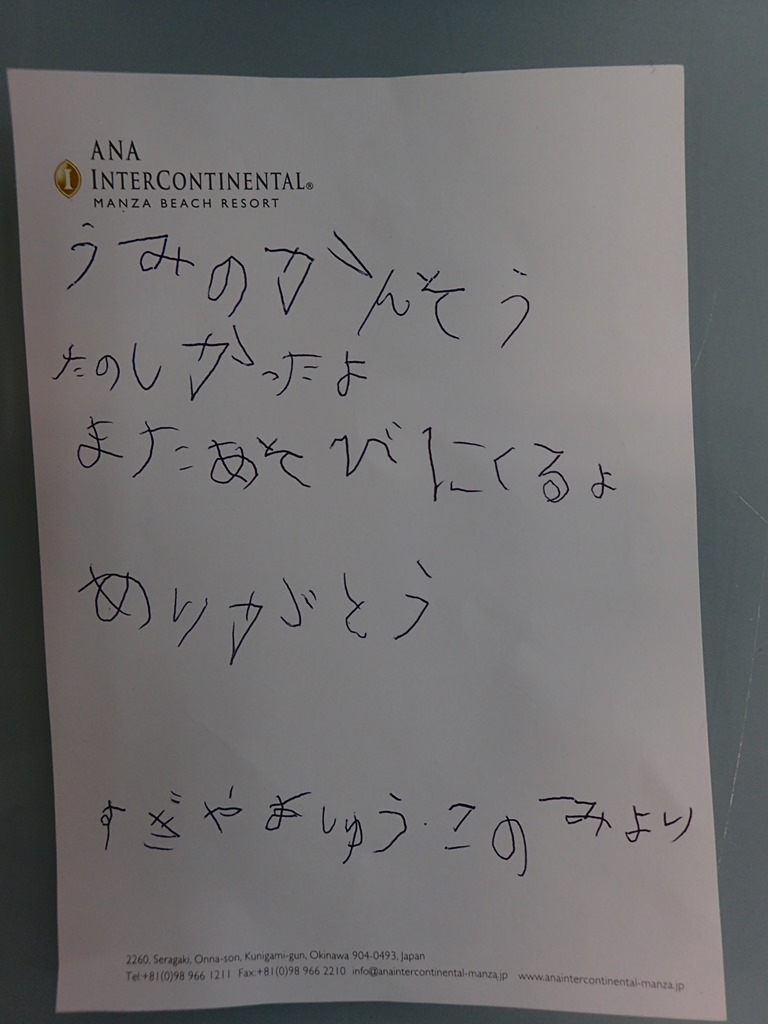 ANA
INTERCONTINENTAL®
MANZA BEACH RESORT
うみのかんそう
たのしかったよ
またあそびにくるよ
ありがとう
すぎやましゅう・このみより
2260, Seragaki, Onna-son, Kunigami-gun, Okinawa 904-0493, Japan
Tel:+81(0)98 966 1211 Fax:+81(0)98 966 2210 info@anaintercontinental-manza.jp www.anaintercontinental-manza.jp